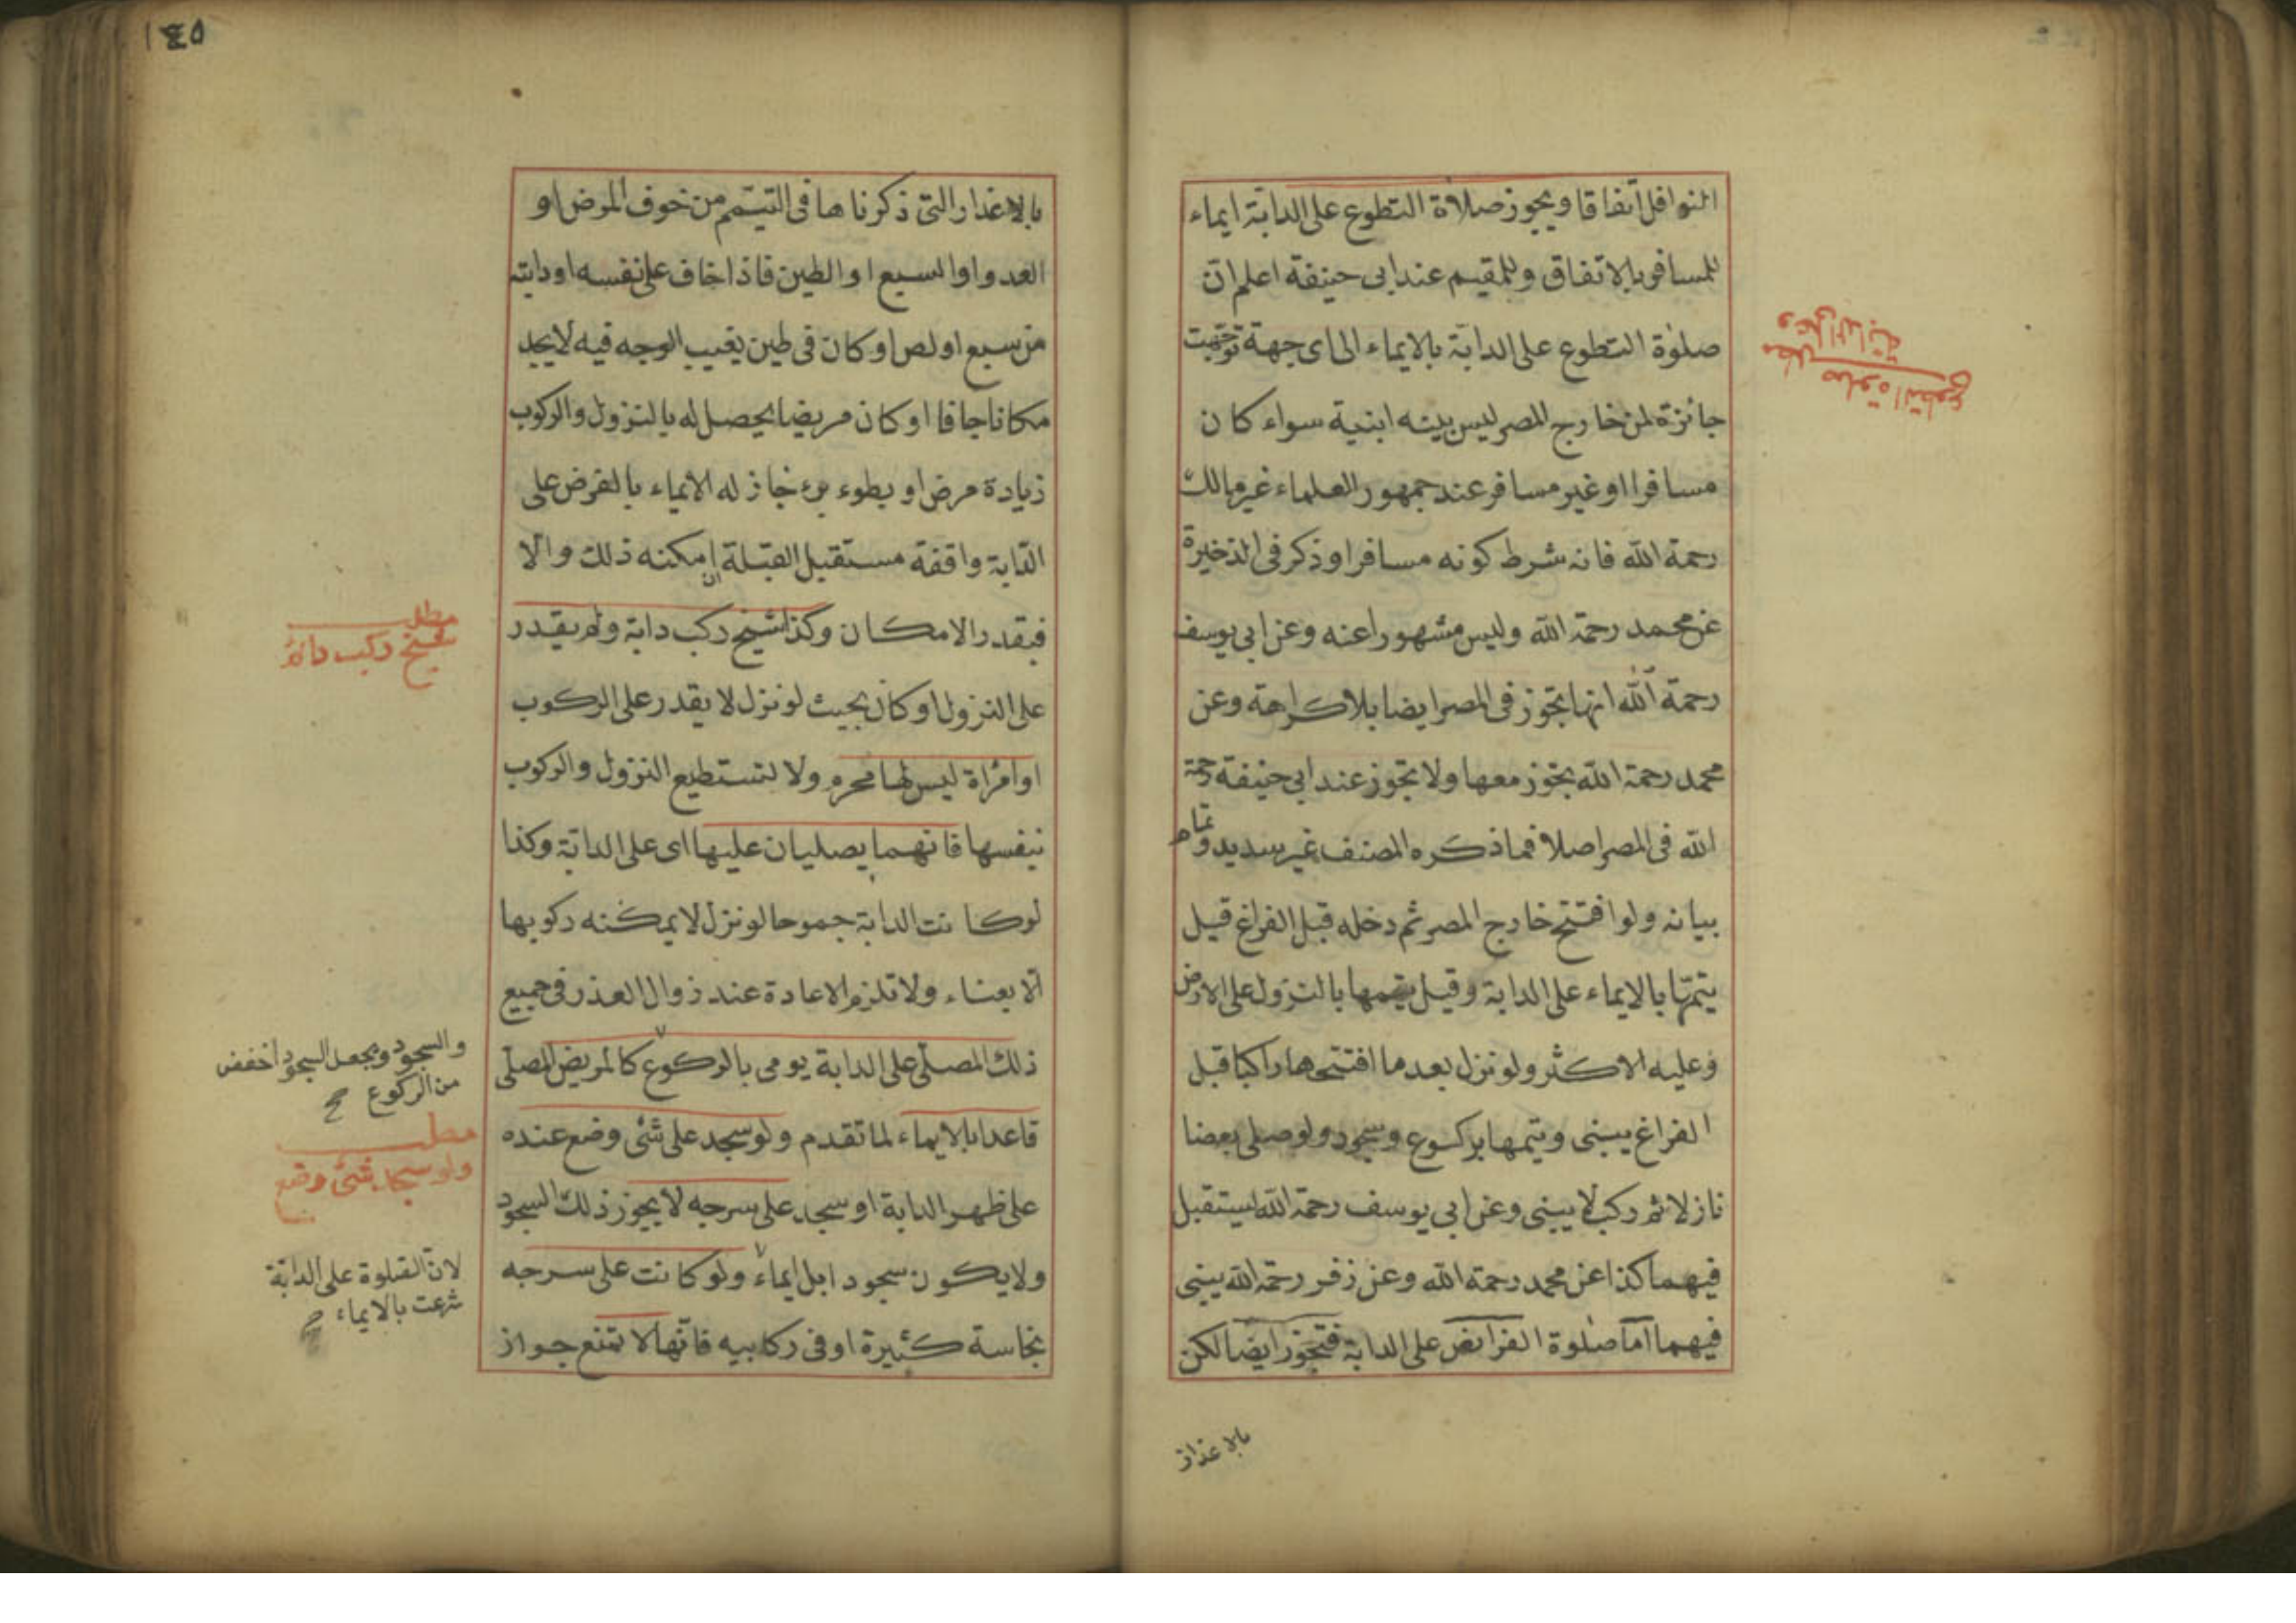 النوافل اتفاقا ويجوز صلاة التطوع على الدابة ايماء
للمسافر بالاتفاق وللمقيم عند ابى حنيفة اعلم ان
صلوة التطوع على الدابة بالايماء الى اى جهة توجهت
جائزة لمن خارج المصر ليس بيته ابنية سواء كان
مسافرا او غير مسافر عند جمهور العلماء غير مالك
رحمة الله فانه شرط كونه مسافرا وذكر فى الذخيرة
عن محمد رحمة الله وليس مشهورا عنه وعن ابى يوسف
رحمة الله انها تجوز فى المصر ايضا بلا كراهة وعن
محمد رحمة الله يجوز معها ولا تجوز عند ابى حنيفة رحمة
الله فى المصر اصلا فماذكره المصنف غير سديد وتمام
بيانه ولو افتتح خارج المصر ثم دخله قبل الفراغ قيل
يتمها بالايماء على الدابة وقيل يتمها بالنزول على الارض
وعليه الاكثر ولو نزل بعد ما افتتحها راكبا قبل
الفراغ يبنى ويتمها بركوع وسجود ولو صلى بعضا
نازلا ثم ركب لا يبنى وعن ابى يوسف رحمة الله يستقبل
فيهما كذا عن محمد رحمة الله وعن زفر رحمة الله يبنى
فيهما اما صلوة الفرائض على الدابة فتجوز ايضا لكن
بالاعذار
مطلب
صلوة التطوع
على الدابة
١٤٥
بالاعذار التى ذكرناها فى التيمم من خوف المرض او
العدو او السبع او الطين فاذا خاف على نفسه او دابته
من سبع او لص او كان فى طين يغيب الوجه فيه لا يجد
مكانا جافا او كان مريضا يحصل له بالنزول والركوب
زيادة مرض او بطوء برء جاز له الايماء بالفرض على
الدابة واقفة مستقبل القبلة ان امكنه ذلك والا
فبقدر الامكان وكذا شيخ ركب دابة ولم يقدر
على النزول او كان بحيث لو نزل لا يقدر على الركوب
او امرأة ليس لها محرم ولا تستطيع النزول والركوب
بنفسها فانهما يصليان عليها اى على الدابة وكذا
لو كانت الدابة جموحا لو نزل لا يمكنه ركوبها
الا بعناء ولا تلزم الاعادة عند زوال العذر فى جميع
ذلك المصلى على الدابة يومى بالركوع كالمريض المصلى
قاعدا بالايماء لما تقدم ولو سجد على شئ وضع عنده
على ظهر الدابة او سجد على سرجه لا يجوز ذلك السجود
ولا يكون سجودا بل ايماء ولو كانت على سرجه
نجاسة كثيرة او فى ركابيه فانها لا تمنع جواز
مطلب
شيخ ركب دابة
والسجود ويجعل السجود اخفض
من الركوع صح
مطلب
ولو سجد شئ وضع
لان الصلوة على الدابة
شرعت بالايماء صح